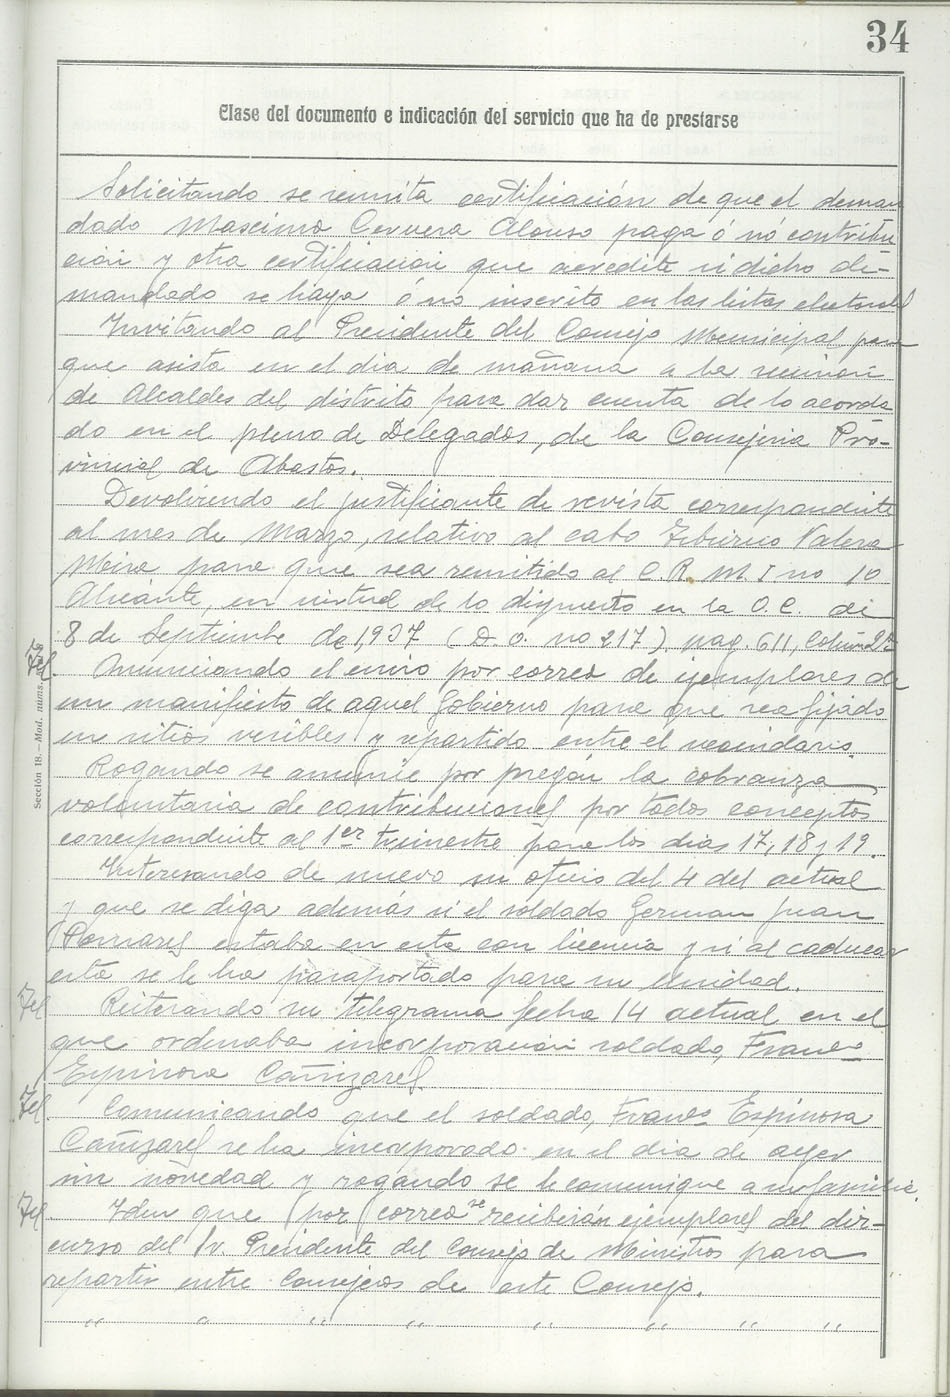 34
Clase del documento e indicación del servicio que ha de prestarse
Solicitando se remita certificación de que el deman
dado Maximo Cervera Alonso paga ó no contribu
ción y otra certificación que acredite si dicho de-
mandado se haya ó no inscrito en las listas electorales
Invitando al Presidente del Consejo Municipal para
que asista en el dia de mañana a la reunion
de Alcaldes del distrito para dar cuenta de lo acorda
do en el pleno de Delegados, de la Consejeria Pro-
vincial de Abastos.
Devolviendo el justificante de revista correspondiente
al mes de Marzo, relativo al cabo Tiburcio Valera
Meira para que sea remitido al C. R. M. I no 10
Alicante, en virtud de lo dispuesto en la O. C. de
8 de Septiembre de 1937 (D. O. no 217), pag. 611, Column 2ª
Tel. Anunciando el envio por correo de ejemplares de
un manifiesto de aquel Gobierno para que sea fijado
en sitios visibles y repartido entre el vecindario.
Sección 18.—Mod. nums.
Rogando se anuncie por pregón la cobranza
voluntaria de contribuciones por todos conceptos
correspondiente al 1er trimestre para los dias 17, 18 y 19.
Interesando de nuevo su oficio del 4 del actual
y que se diga además si el soldado German Juan
Pomares estaba en esta con licencia y si al caducar
esta se le ha pasaportado para su Unidad.
Tel Reiterando su telegrama fecha 14 actual en el
que ordenaba incorporación soldado, Franco
Espinosa Cañizares.
Tel. Comunicando que el soldado, Franco Espinosa
Cañizares se ha incorporado en el dia de ayer
sin novedad y rogando se le comunique a su familia.
Tel. Idem que por correo se recibirán ejemplares del dis-
curso del Sr. Presidente del Consejo de Ministros para
repartir entre Consejeros de este Consejo.
" " " " " " " "